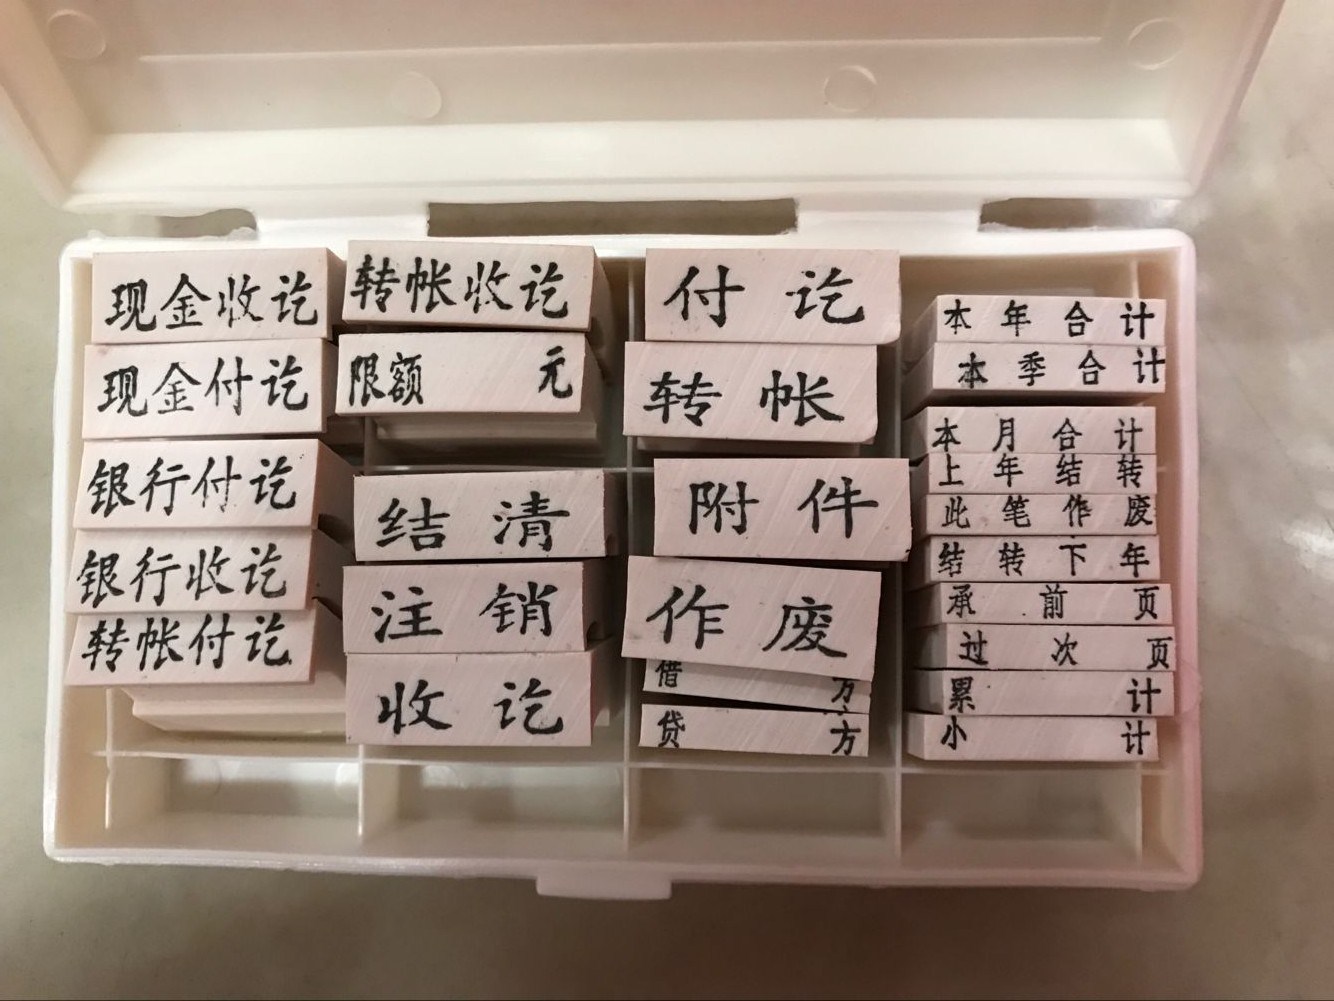 现金收讫
现金付讫
银行付讫
银行收讫
转帐付讫
转帐收讫
限额 元
结清
注销
收讫
付讫
转帐
附件
作废
借 方
贷 方
本年合计
本季合计
本月合计
上年结转
此笔作废
结转下年
承前页
过次页
累计
小计